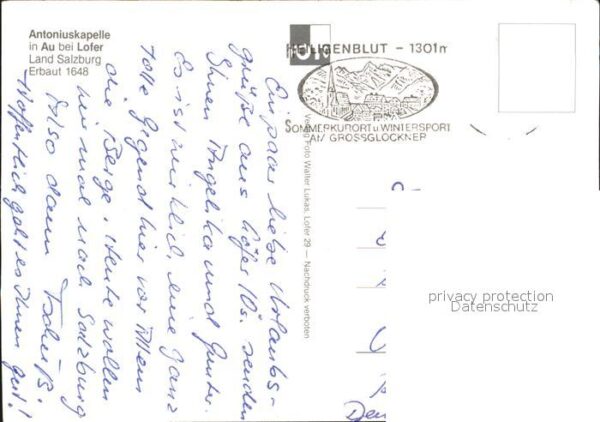 Antoniuskapelle
in Au bei Lofer
Land Salzburg
Erbaut 1648
HEILIGENBLUT - 1301m
SOMMERKURORT u. WINTERSPORT
AM GROSSGLOCKNER
Verlag Foto Walter Lukas, Lofer 29 — Nachdruck verboten
Ein paar liebe Urlaubs-
grüße aus senden
Ihnen Angelika und Gunter.
Es ist wirklich eine ganz
tolle Gegend hier vor Allem
die Berge. Heute wollen
wir mal nach Salzburg
Also dann Tschüß!
Hoffentlich geht es Ihnen
gut!
privacy protection
Datenschutz